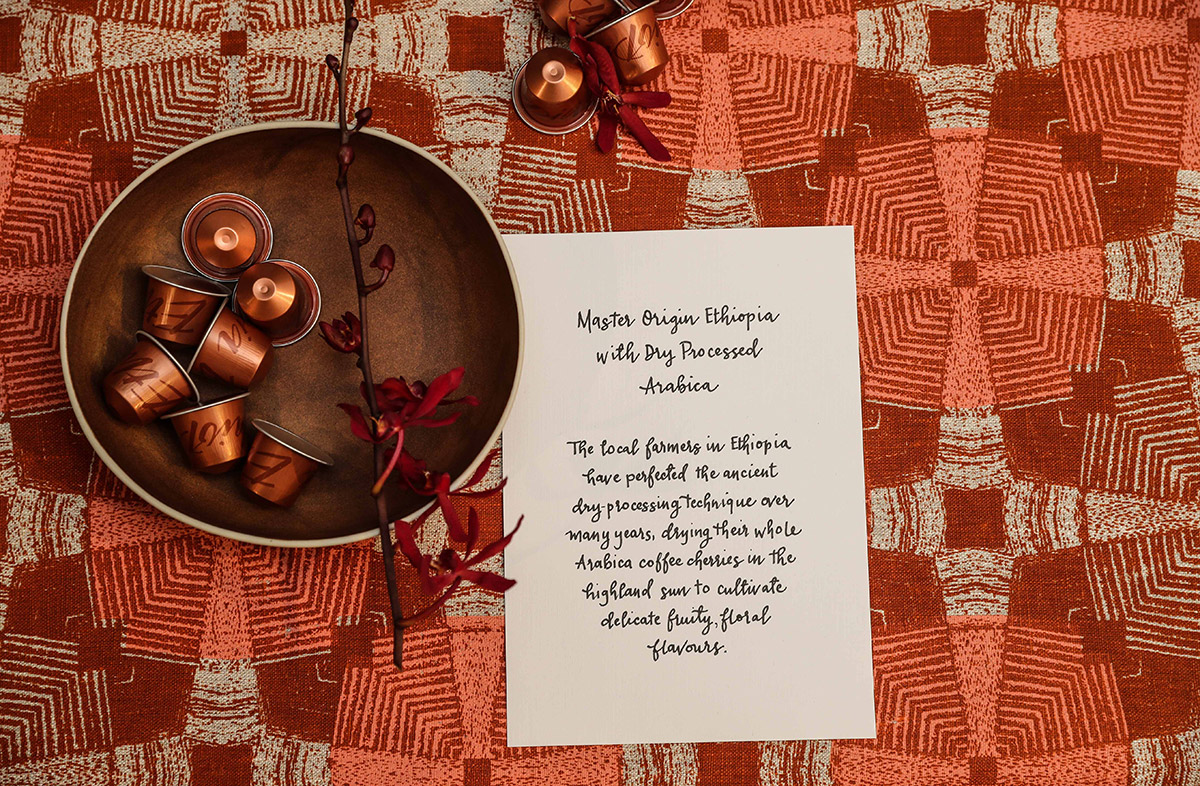 Master Origin Ethiopia
with Dry Processed
Arabica
The local farmers in Ethiopia
have perfected the ancient
dry-processing technique over
many years, drying their whole
Arabica coffee cherries in the
highland sun to cultivate
delicate fruity, floral
flavours.